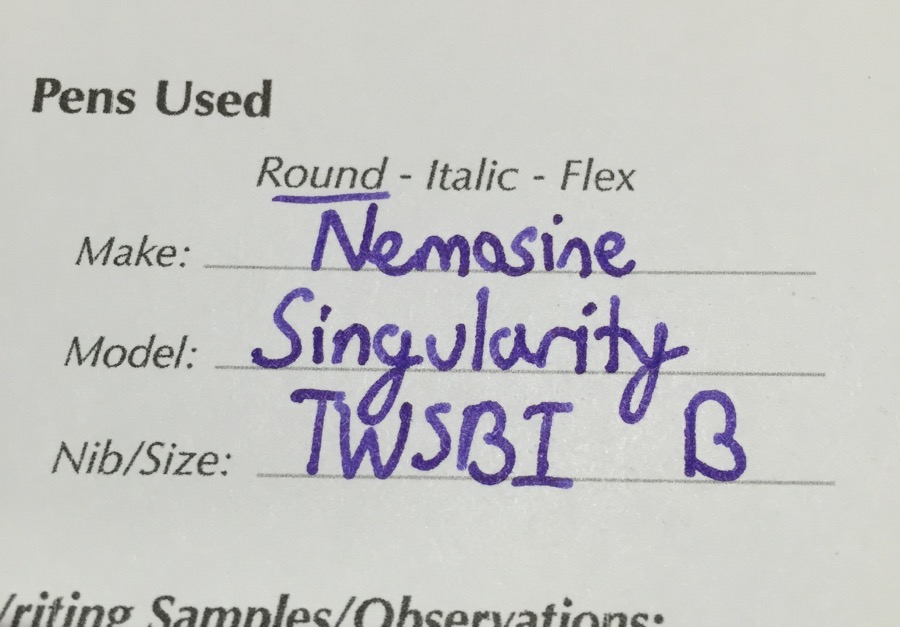 Pens Used
Round - Italic - Flex
Make: Nemosine
Model: Singularity
Nib/Size: TWSBI B
Writing Samples/Observations: